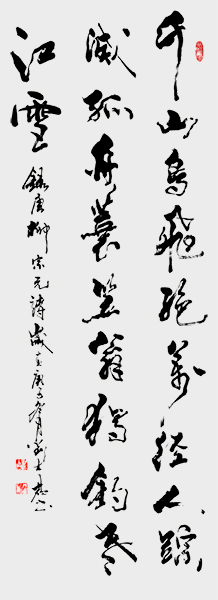 千山鳥飛絕萬徑人蹤
滅孤舟蓑笠翁獨釣寒
江雪
錄唐柳宗元詩歲在庚子月